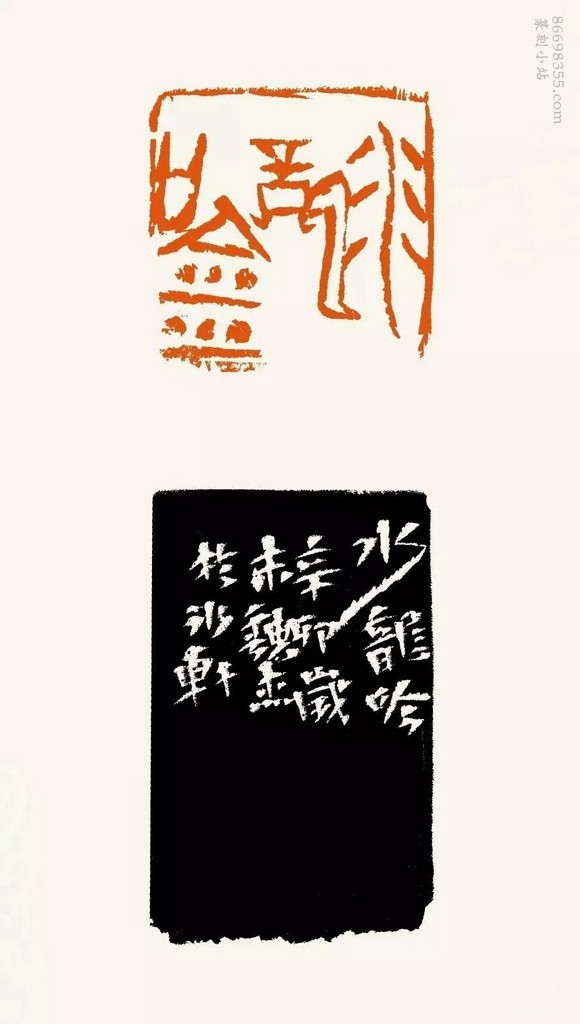 86698355.com
篆刻小站
水龍吟
水龍吟
辛卯歲
於沙軒